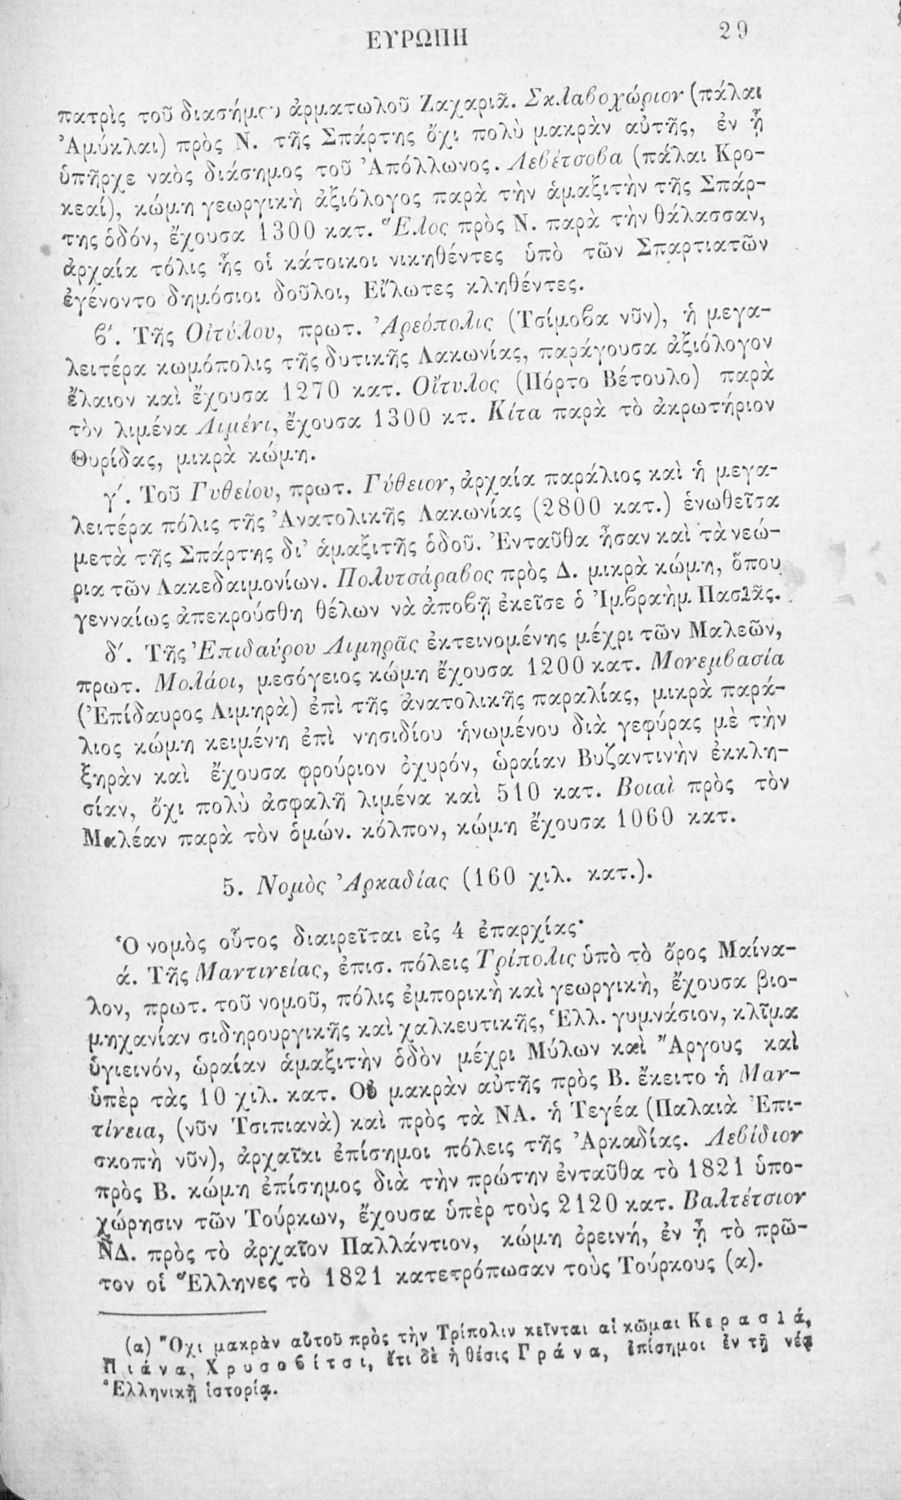 ΕΥΡΩΠΗ 29
πατρὶς τοῦ διασήμου ἁρματωλοῦ Ζαχαριᾶ. Σκλαβοχώριον (πάλαι
Ἀμύκλαι) πρὸς Ν. τῆς Σπάρτης ὄχι πολὺ μακρὰν αὐτῆς, ἐν ᾗ
ὑπῆρχε ναὸς διάσημος τοῦ Ἀπόλλωνος. Λεβέτσοβα (πάλαι Κρο-
κεαί), κώμη γεωργικὴ ἀξιόλογος παρὰ τὴν ἁμαξιτὴν τῆς Σπάρ-
της ὁδόν, ἔχουσα 1300 κατ. Ἕλος πρὸς Ν. παρὰ τὴν θάλασσαν,
ἀρχαία τόλις ἧς οἱ κάτοικοι νικηθέντες ὑπὸ τῶν Σπαρτιατῶν
ἐγένοντο δημόσιοι δοῦλοι, Εἵλωτες κληθέντες.
β′. Τῆς Οἰτύλου, πρωτ. Ἀρεόπολις (Τσίμοβα νῦν), ἡ μεγα-
λειτέρα κωμόπολις τῆς δυτικῆς Λακωνίας, παράγουσα ἀξιόλογον
ἔλαιον καὶ ἔχουσα 1270 κατ. Οἴτυλος (Πόρτο Βέτουλο) παρὰ
τὸν λιμένα Λιμένι, ἔχουσα 1300 κτ. Κίτα παρὰ τὸ ἀκρωτήριον
Θυρίδας, μικρὰ κώμη.
γ′. Τοῦ Γυθείου, πρωτ. Γύθειον, ἀρχαία παράλιος καὶ ἡ μεγα-
λειτέρα πόλις τῆς Ἀνατολικῆς Λακωνίας (2800 κατ.) ἑνωθεῖσα
μετὰ τῆς Σπάρτης δι’ ἁμαξιτῆς ὁδοῦ. Ἐνταῦθα ἦσαν καὶ τὰ νεώ-
ρια τῶν Λακεδαιμονίων. Πολυτσάραβος πρὸς Δ. μικρὰ κώμη, ὅπου
γενναίως ἀπεκρούσθη θέλων νὰ ἀποβῇ ἐκεῖσε ὁ Ἰμβραὴμ Πασιᾶς.
δ′. Τῆς Ἐπιδαύρου Λιμηρᾶς ἐκτεινομένης μέχρι τῶν Μαλεῶν,
πρωτ. Μολάοι, μεσόγειος κώμη ἔχουσα 1200 κατ. Μονεμβασία
(Ἐπίδαυρος Λιμηρὰ) ἐπὶ τῆς ἀνατολικῆς παραλίας, μικρὰ παρά-
λιος κώμη κειμένη ἐπὶ νησιδίου ἡνωμένου διὰ γεφύρας μὲ τὴν
ξηρὰν καὶ ἔχουσα φρούριον ὀχυρόν, ὡραίαν Βυζαντινὴν ἐκκλη-
σίαν, ὄχι πολὺ ἀσφαλῆ λιμένα καὶ 510 κατ. Βοιαὶ πρὸς τὸν
Μαλέαν παρὰ τὸν ὁμών. κόλπον, κώμη ἔχουσα 1060 κατ.
5. Νομὸς Ἀρκαδίας (160 χιλ. κατ.).
Ὁ νομὸς οὗτος διαιρεῖται εἰς 4 ἐπαρχίας·
ά. Τῆς Μαντινείας, ἐπισ. πόλεις Τρίπολις ὑπὸ τὸ ὄρος Μαίνα-
λον, πρωτ. τοῦ νομοῦ, πόλις ἐμπορικὴ καὶ γεωργική, ἔχουσα βιο-
μηχανίαν σιδηρουργικῆς καὶ χαλκευτικῆς, Ἑλλ. γυμνάσιον, κλῖμα
ὑγιεινόν, ὡραίαν ἁμαξιτὴν ὁδὸν μέχρι Μύλων καὶ Ἄργους καὶ
ὑπὲρ τὰς 10 χιλ. κατ. Οὐ μακρὰν αὐτῆς πρὸς Β. ἔκειτο ἡ Μαν-
τίνεια, (νῦν Τσιπιανὰ) καὶ πρὸς τὰ ΝΑ. ἡ Τεγέα (Παλαιὰ Ἐπι-
σκοπὴ νῦν), ἀρχαῖαι ἐπίσημοι πόλεις τῆς Ἀρκαδίας. Λεβίδιον
πρὸς Β. κώμη ἐπίσημος διὰ τὴν πρώτην ἐνταῦθα τὸ 1821 ὑπο-
χώρησιν τῶν Τούρκων, ἔχουσα ὑπὲρ τοὺς 2120 κατ. Βαλτέτσιον
ΝΔ. πρὸς τὸ ἀρχαῖον Παλλάντιον, κώμη ὀρεινή, ἐν ᾗ τὸ πρῶ-
τον οἱ Ἕλληνες τὸ 1821 κατετρόπωσαν τοὺς Τούρκους (α).
(α) Ὄχι μακρὰν αὐτοῦ πρὸς τὴν Τρίπολιν κεῖνται αἱ κῶμαι Κερασιά,
Πιάνα, Χρυσοβίτσι, ἔτι δὲ ἡ θέσις Γράνα, ἐπίσημοι ἐν τῇ νέᾳ
Ἑλληνικῇ ἱστορίᾳ.